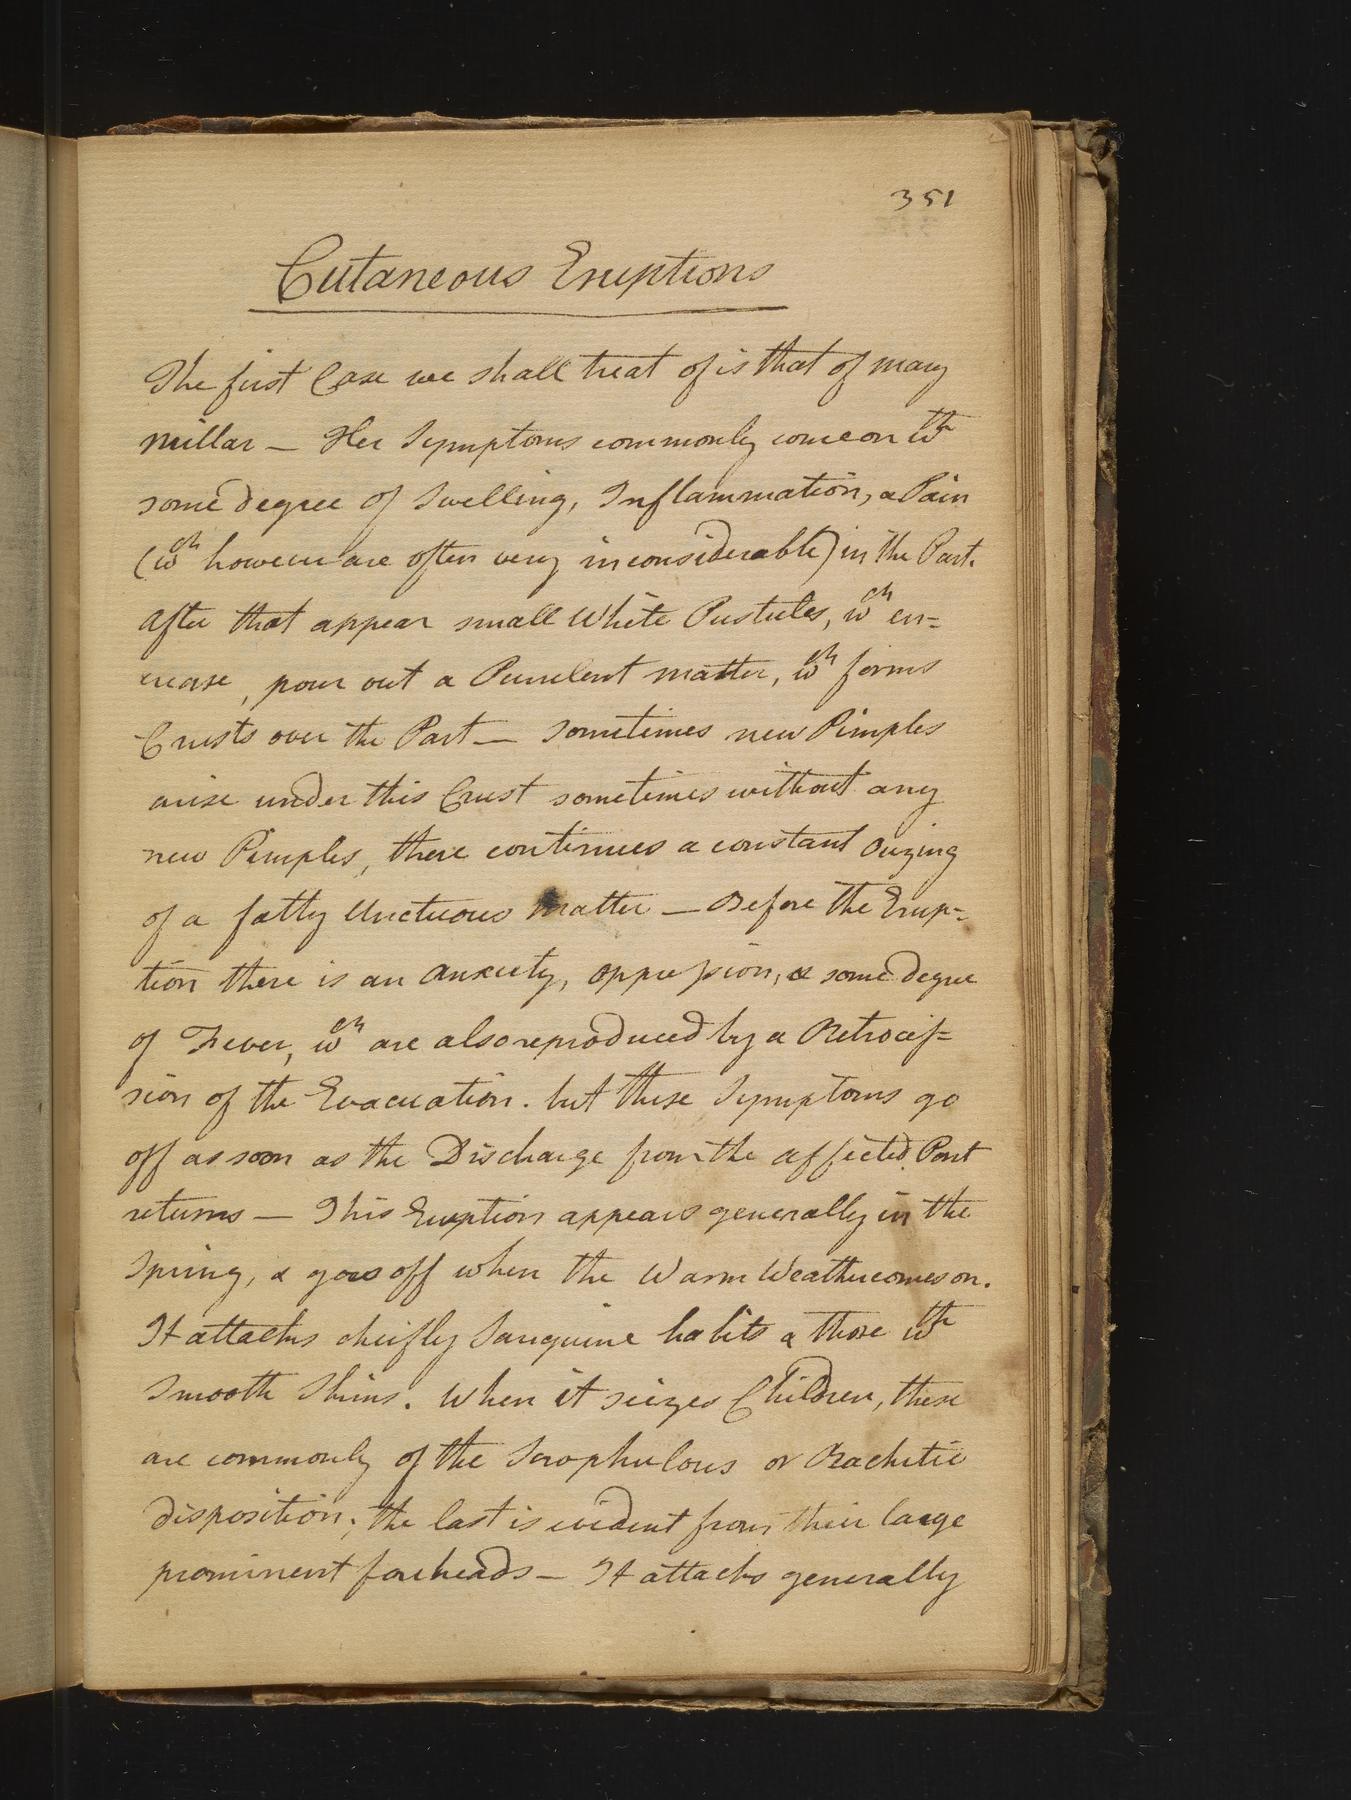 351
Cutaneous Eruptions
The first Case we shall treat of is that of mary
millar — Her Symptoms commonly come on wth
some degree of Swelling, Inflammation, & Pain
(wch however are often very inconsiderable) in the Part.
After that appear small White Pustules, wch en=
crease, pour out a Purulent matter, wch forms
Crusts over the Part — sometimes new Pimples
arise under this Crust sometimes without any
new Pimples, there continues a constant Ouzing
of a fatty Unctuous matter — Before the Erup=
tion there is an Anxiety, Oppression, & some degree
of Fever, wch are also reproduced by a Retroces=
sion of the Evacuation. but these Symptoms go
off as soon as the Discharge from the affected Part
returns — This Eruption appears generally in the
Spring, & goes off when the Warm Weather comes on.
It attacks cheifly Sanguine habits & those wth
Smooth Skins. When it seizes Children, these
are commonly of the Scrophulous or Rachitic
disposition; the last is evident from their large
prominent foreheads — It attacks generally